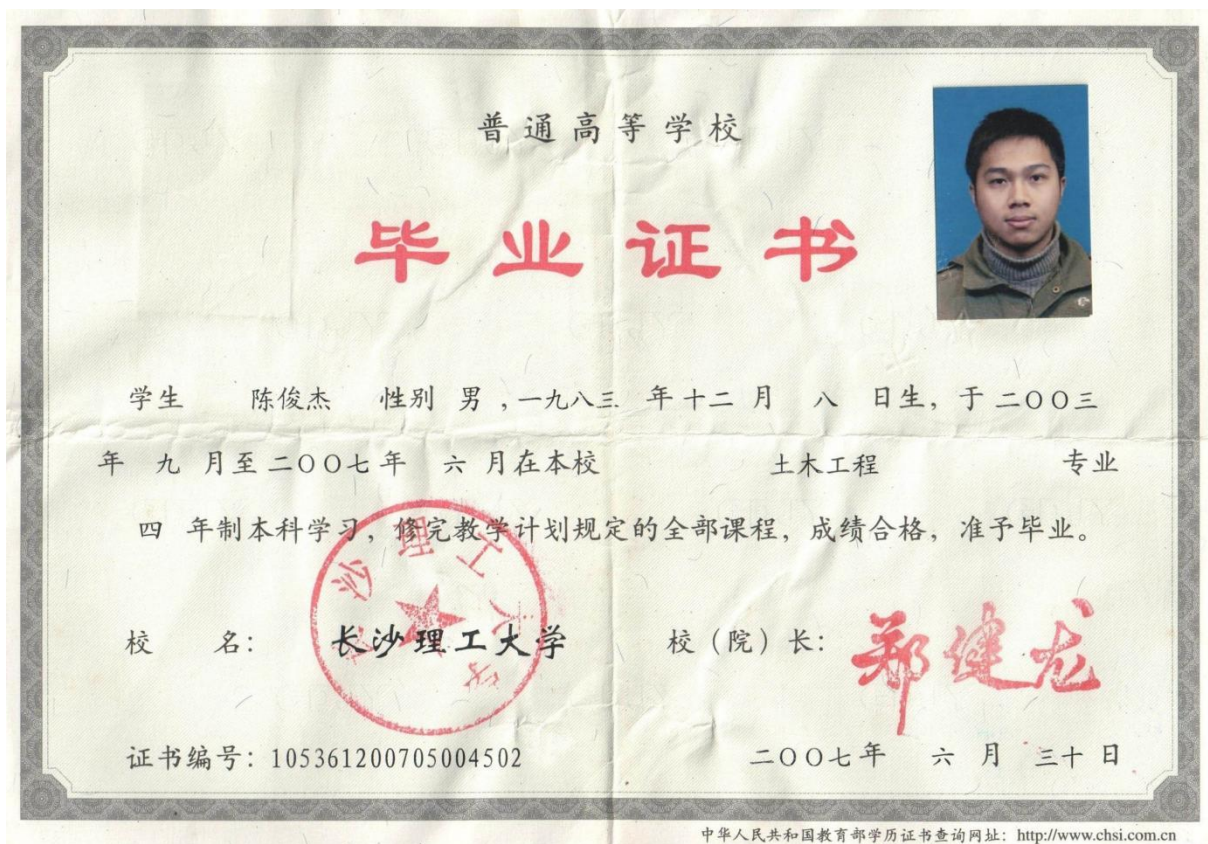 普通高等学校
毕业证书
学生 陈俊杰 性别 男 ，一九八三 年 十二 月 八 日生，于 二〇〇三
年 九 月至 二〇〇七 年 六 月在本校 土木工程 专业
四 年制本科学习，修完教学计划规定的全部课程，成绩合格，准予毕业。
校 名： 长沙理工大学 校（院）长： 郑健龙
长沙理工大学
证书编号：105361200705004502 二〇〇七年 六 月 三十 日
中华人民共和国教育部学历证书查询网址：http://www.chsi.com.cn